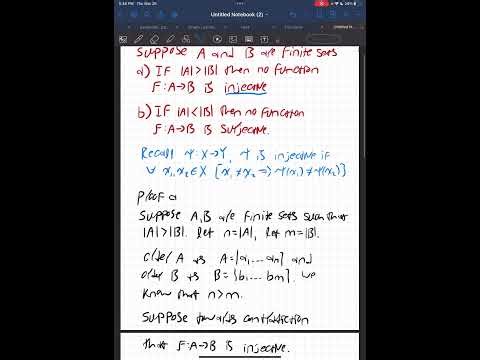 5:44 PM Thu Mar 26
24%
Untitled Notebook (2)
Suppose A and B are finite sets
a) If |A|>|B| then no function
F:A→B is injective
b) If |A|<|B| then no function
F:A→B is surjective.
Recall Ψ:X→Y, Ψ is injective if
∀ x₁,x₂∈X [x₁≠x₂ ⇒ Ψ(x₁)≠Ψ(x₂)]
Proof a
Suppose A,B are finite sets such that
|A|>|B|. let n=|A|, let m=|B|.
Order A as A={a,...an} and
order B as B={b,...bm}. we
know that n>m.
Suppose towards contradiction
that F:A→B is injective.